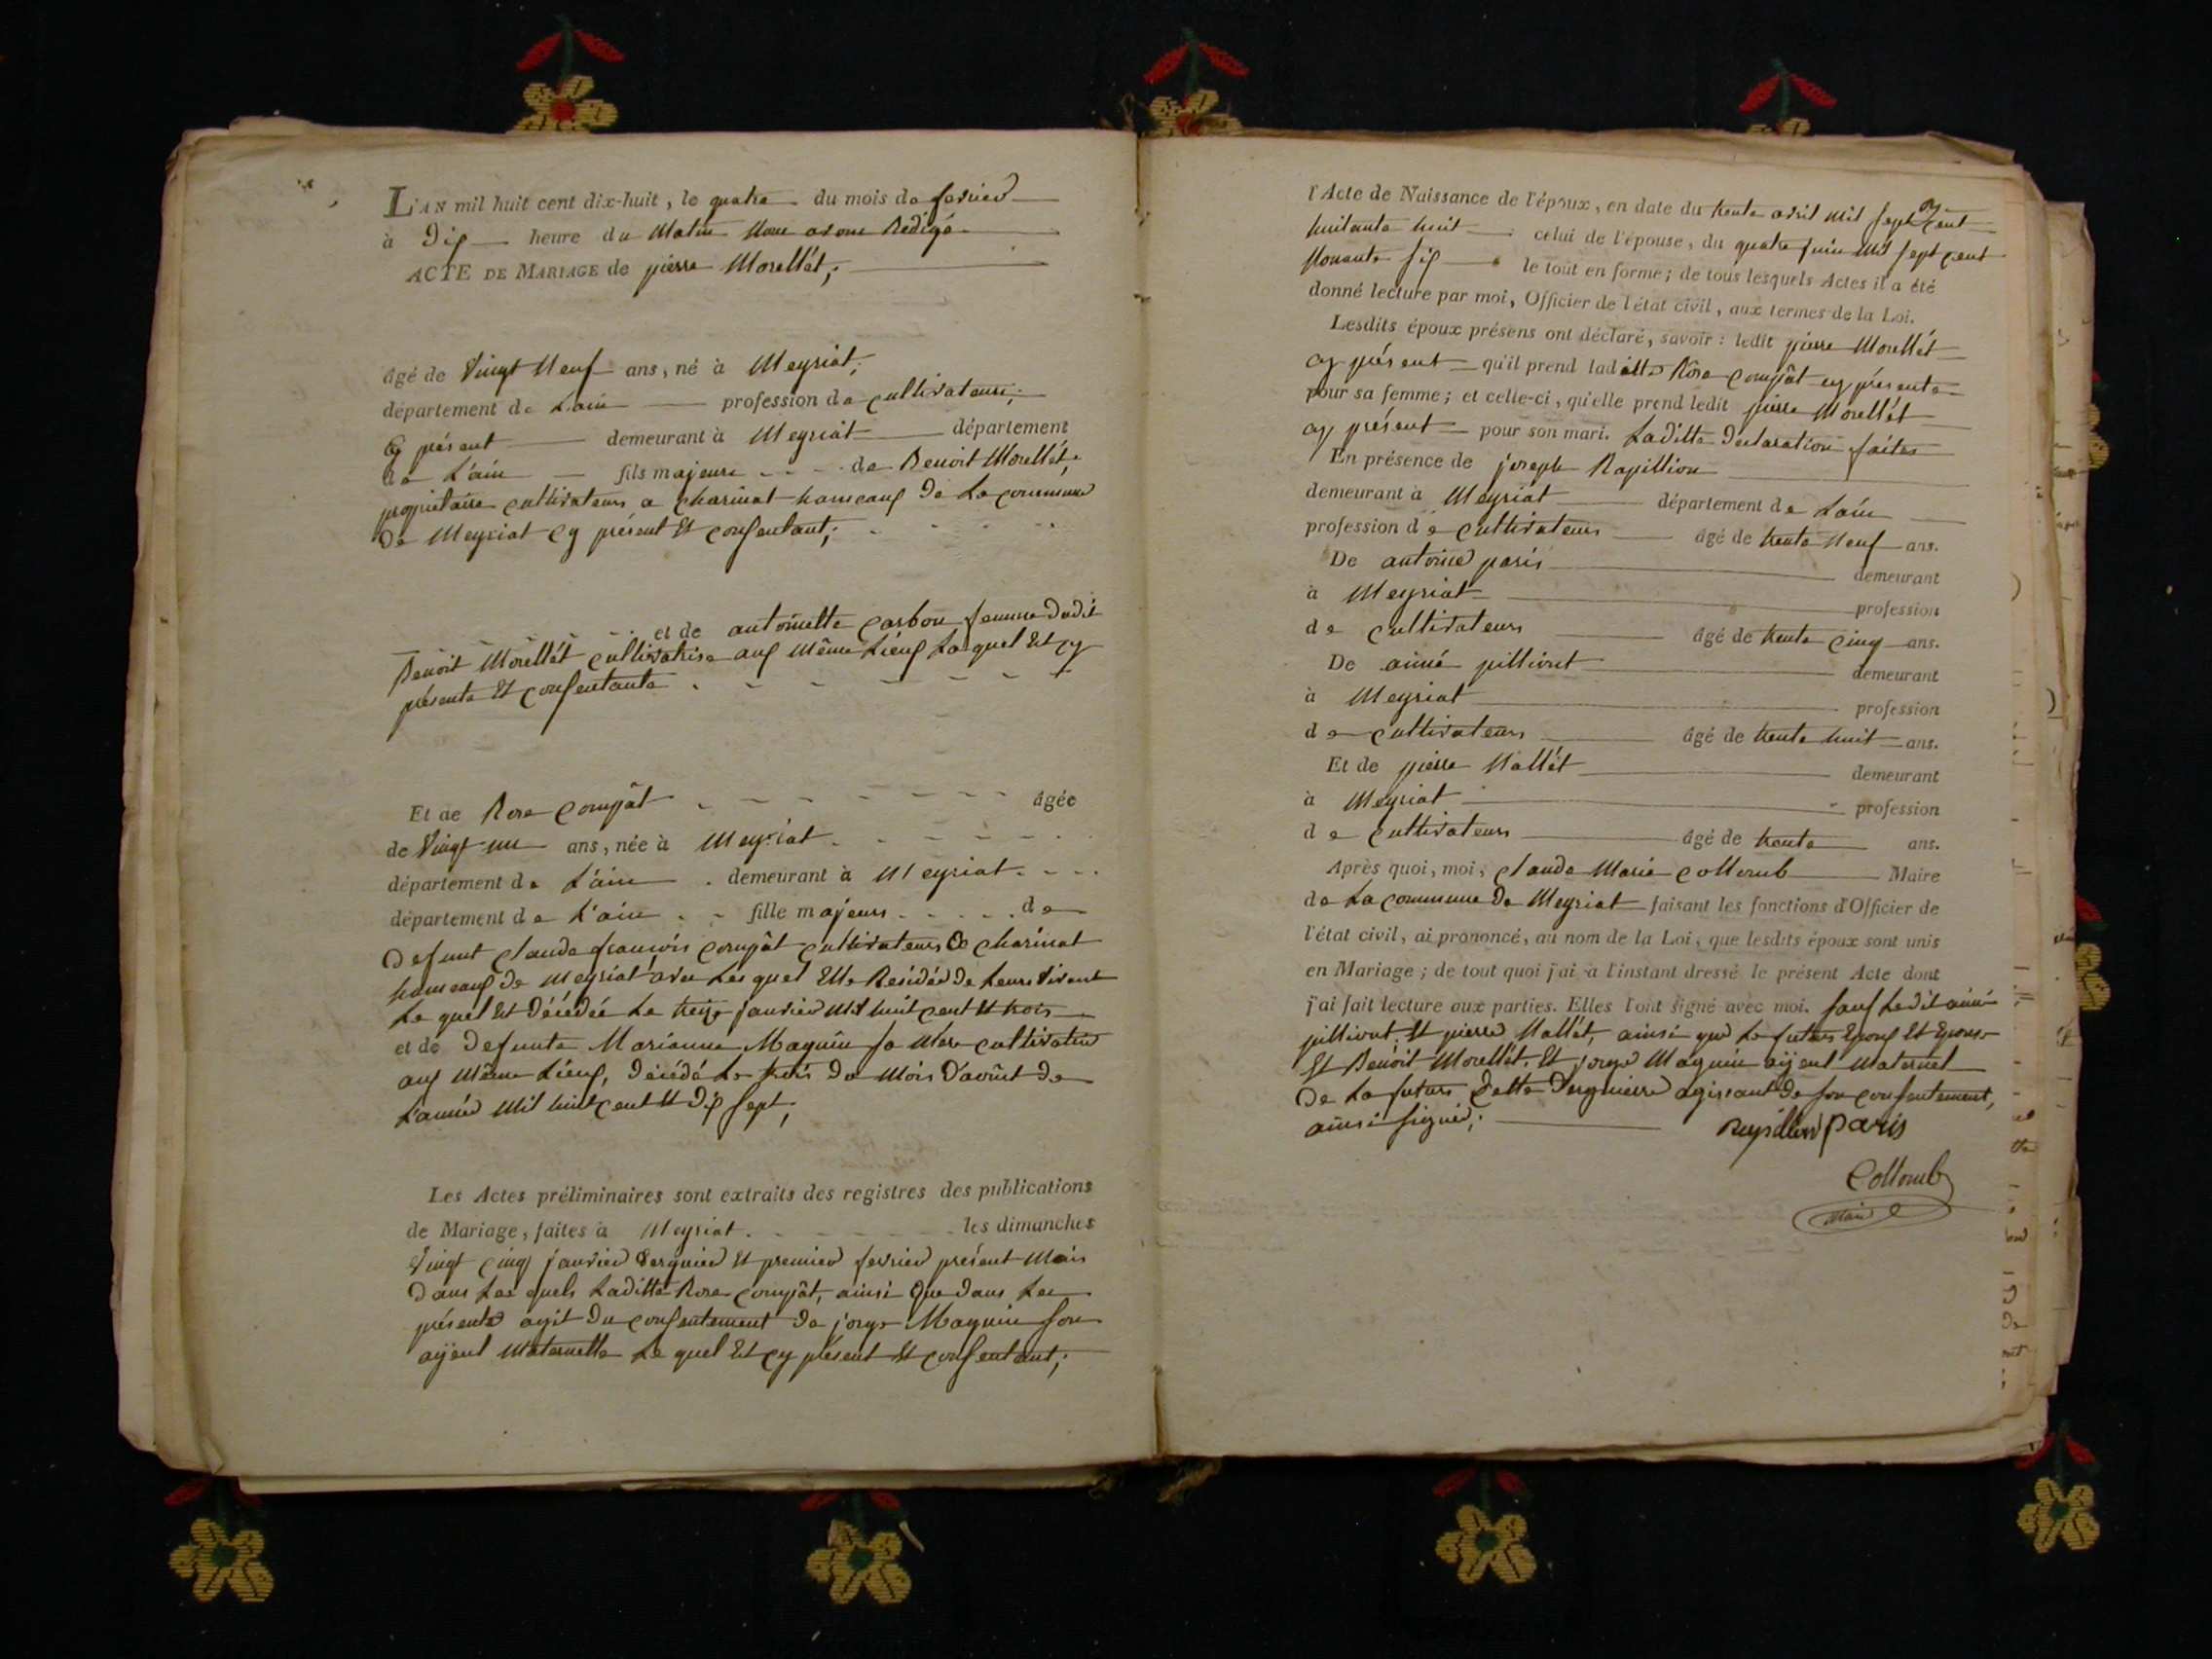 L'AN mil huit cent dix-huit, le quatre du mois de fevrier
à Dix heure du Matin Nous avons Redigé
ACTE DE MARIAGE de pierre Morellét;
âgé de Vingt Neuf ans, né à Meyriat;
département de L'ain profession de cultivateur;
Cy présent demeurant à Meyriat département
de L'ain fils majeure de Benoit Morellét,
propriétaire cultivateur a Charinat hameaux De La commune
De Meyriat Cy présent Et consentant;
et de antoinette Carbon femme Dudit
Benoit Morellét cultivatrise aux Même Lieux Laquel Est cy
présente Et consentante
Et de Rose Compât âgée
de Vingt un ans, née à Meyriat
département de L'ain demeurant à Meyriat
département de L'ain fille majeure de
Defunt Claude françois Compât cultivateur a Charinat
hameaux De Meyriat avec Lesquel Elle Residéd De Leurs Vivent
Le quel Est Décédée Le treize janvier Mil huit cent Et trois
et de Defunte Marianne Maguin sa Mere cultivatrice
aux Même Lieux, Décédé Le trois Du Mois D'aoûst De
L'année Mil huit cent Et Dix sept;
Les Actes préliminaires sont extraits des registres des publications
de Mariage, faites à Meyriat les dimanches
Vingt cinq janvier Dergnier Et premier fevrier présent Mois
Dans Les quels Laditte Rose Compât, ainsi Que Dans Les
présente agit Du consentement De jorge Maguin son
aÿeul Maternelle Le quel Est cy présent Et consentant;
l'Acte de Naissance de l'époux, en date du trente avril Mil sept Cent
huitante huit celui de l'épouse, du quatre juin Mil sept cent
Nonante six le tout en forme; de tous lesquels Actes il a été
donné lecture par moi, Officier de l'état civil, aux termes de la Loi.
Lesdits époux présens ont déclaré, savoir: ledit pierre Morellét
cy présent qu'il prend laditte Rose Compât cy présente
pour sa femme; et celle-ci, qu'elle prend ledit pierre Morellét
cy présent pour son mari. Laditte Declaration faites
En présence de joseph Rapillion
demeurant à Meyriat département de L'ain
profession de cultivateur âgé de trente Neuf ans.
De antoine paris demeurant
à Meyriat profession
de cultivateur âgé de trente cinq ans.
De aimé pillivut demeurant
à Meyriat profession
de cultivateur âgé de trente huit ans.
Et de pierre Nallét demeurant
à Meyriat profession
de cultivateur âgé de trente ans.
Après quoi, moi, Claude Marie Collomb Maire
de La commune De Meyriat faisant les fonctions d'Officier de
l'état civil, ai prononcé, au nom de la Loi, que lesdits époux sont unis
en Mariage; de tout quoi j'ai à l'instant dressé le présent Acte dont
j'ai fait lecture aux parties. Elles l'ont signé avec moi. sauf Ledit aimé
pillivut, Et pierre Nallét, ainsi que Le futurs Epoux Et Epouse
Et Benoit Morellét, Et jorge Maguin aÿeul Maternel
De La future Cette Dergniere agissant De son consentement,
ainsi signié;
Rapillion paris
Collomb
Maire